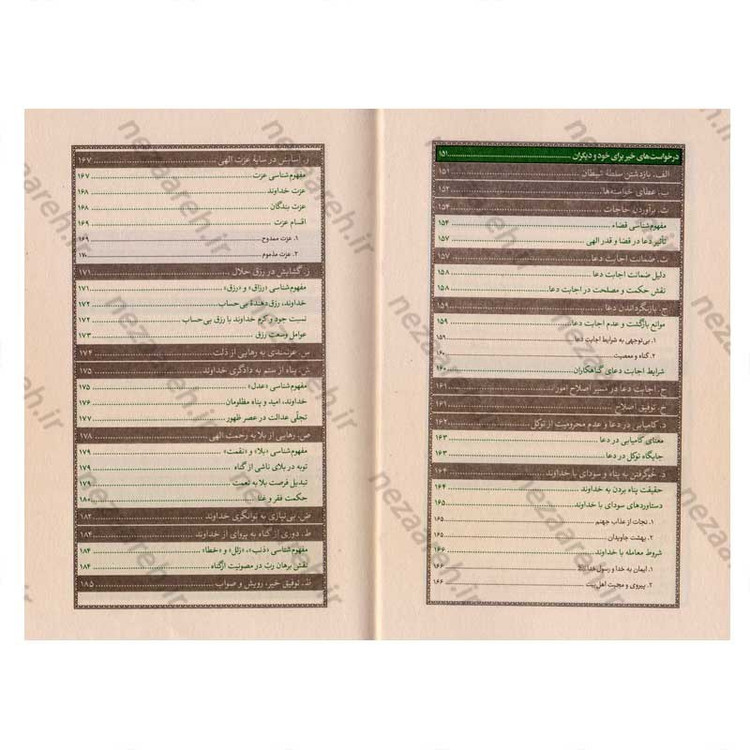 درخواست‌های خیر برای خود و دیگران ........ ۱۵۱
الف. بازداشتن سلطهٔ شیطان ........ ۱۵۱
ب. عطای خواسته‌ها ........ ۱۵۲
پ. برآوردن حاجات ........ ۱۵۴
مفهوم‌شناسی قضاء ........ ۱۵۴
تأثیر دعا در قضا و قدر الهی ........ ۱۵۷
ت. ضمانت اجابت دعا ........ ۱۵۷
دلیل ضمانت اجابت دعا ........ ۱۵۸
نقش حکمت و مصلحت در اجابت دعا ........ ۱۵۸
ج. بازنگرداندن دعا ........ ۱۵۹
موانع بازگشت و عدم اجابت دعا ........ ۱۵۹
۱. بی‌توجهی به شرایط اجابت دعا ........ ۱۵۹
۲. گناه و معصیت ........ ۱۶۰
شرایط اجابت دعای گناهکاران ........ ۱۶۰
ح. اجابت دعا در مسیر اصلاح امور ........ ۱۶۱
خ. توفیق اصلاح ........ ۱۶۱
د. کامیابی در دعا و عدم محرومیت از توکل ........ ۱۶۲
معنای کامیابی در دعا ........ ۱۶۳
جایگاه توکل در دعا ........ ۱۶۳
ذ. خوگرفتن به پناه و سودای با خداوند ........ ۱۶۴
حقیقت پناه بردن به خداوند ........ ۱۶۴
دستاوردهای سودای با خداوند ........ ۱۶۵
۱. نجات از عذاب جهنم ........ ۱۶۵
۲. بهشت جاویدان ........
شروط معامله با خداوند ........ ۱۶۶
۱. ایمان به خدا و رسول خدا ........ ۱۶۶
۲. پیروی و محبت اهل‌بیت ........ ۱۶۶
ر. آسایش در سایهٔ عزت الهی ........ ۱۶۷
مفهوم‌شناسی عزت ........ ۱۶۷
عزت خداوند ........ ۱۶۸
عزت بندگان ........ ۱۶۸
اقسام عزت ........ ۱۶۹
۱. عزت ممدوح ........ ۱۶۹
۲. عزت مذموم ........ ۱۷۰
ز. گشایش در رزق حلال ........ ۱۷۱
مفهوم‌شناسی «رزاق» و «رزق» ........ ۱۷۱
خداوند، رزق‌دهندهٔ بی‌حساب ........ ۱۷۲
نسبت جود و کرم خداوند با رزق بی‌حساب ........ ۱۷۲
عوامل وسعت رزق ........ ۱۷۳
س. عزتمندی به رهایی از ذلت ........ ۱۷۴
ش. پناه از ستم به دادگری خداوند ........ ۱۷۵
مفهوم‌شناسی «عدل» ........ ۱۷۵
خداوند، امید و پناه مظلومان ........ ۱۷۶
تجلّی عدالت در عصر ظهور ........ ۱۷۷
ص. رهایی از بلا به رحمت الهی ........ ۱۷۸
مفهوم‌شناسی «بلا» و «نقمت» ........ ۱۷۹
توبه در بلای ناشی از گناه ........ ۱۷۹
تبدیل فرصت بلا به نعمت ........ ۱۷۹
حکمت فقر و غنا ........ ۱۸۰
ض. بی‌نیازی به توانگری خداوند ........ ۱۸۲
ط. دوری از گناه به پروای از خداوند ........ ۱۸۴
مفهوم‌شناسی «ذنب»، «زلل» و «خطا» ........ ۱۸۴
نقش برهان ربّ در مصونیت از گناه ........ ۱۸۴
ظ. توفیق خیر، رویش و صواب ........ ۱۸۵
nezaareh.ir